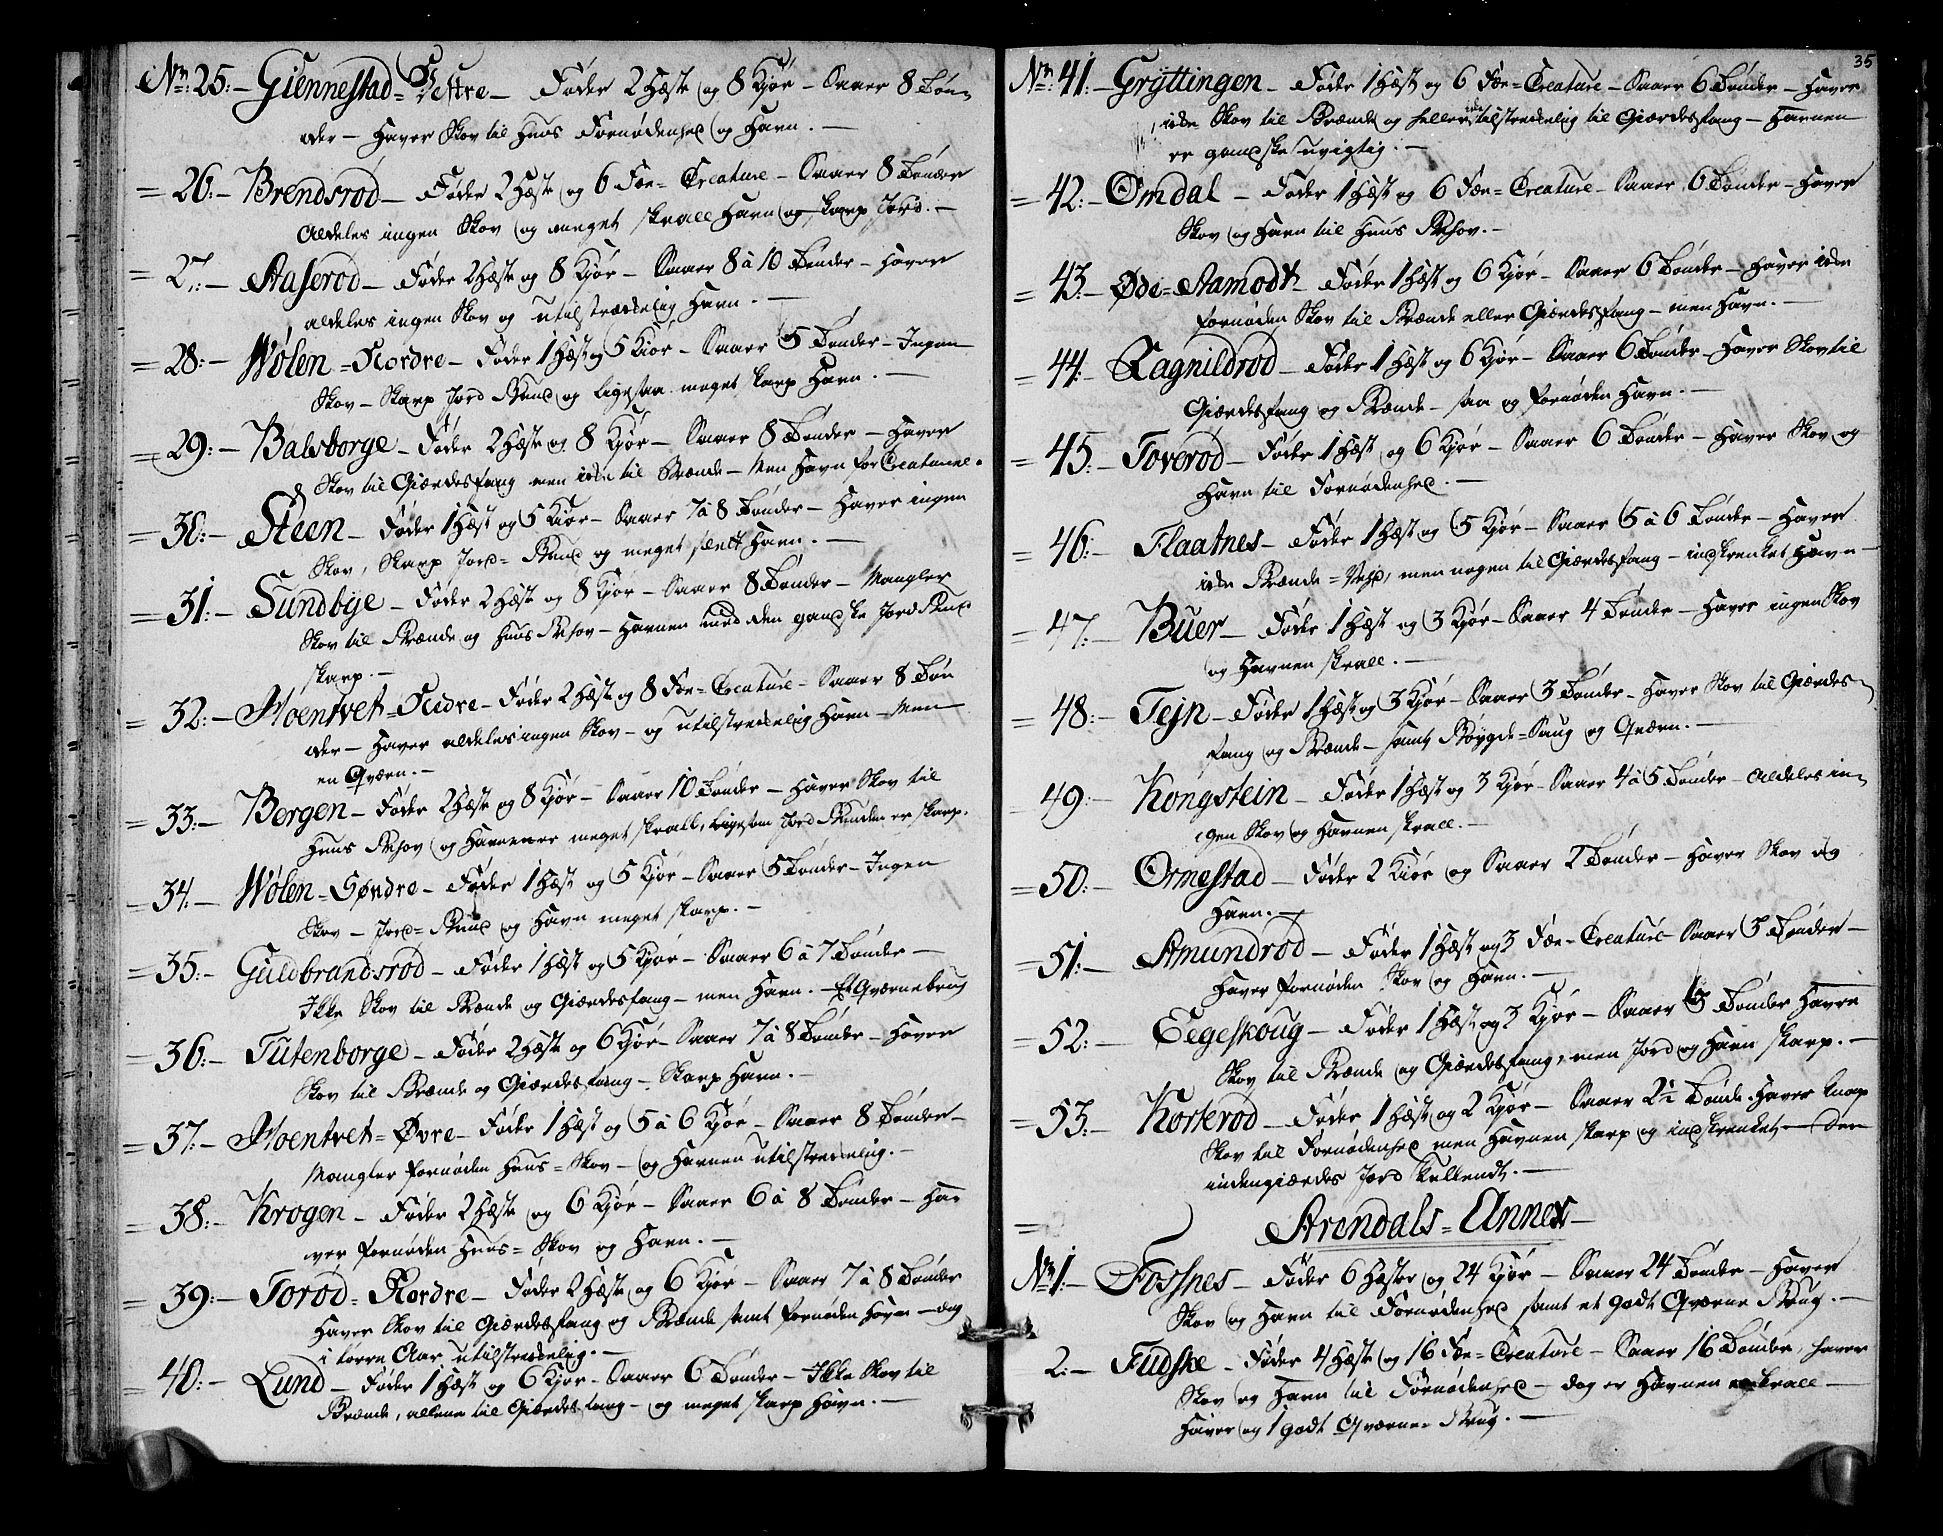 No: 25:- Giennestad=Vestre - Føder 2 Hæste og 8 Kjør - Saaer 8 Tøn-
der - Haver Skov til Huus Fornødenhed og Havn. -
= 26:- Brendsrød - Føder 2 Hæste og 6 Fæ= Creature - Saaer 8 Tønder
Aldeles ingen Skov og meget skrall Havn og skarp Jord. -
= 27:- Aaserød - Føder 2 Hæste og 8 Kjør - Saaer 8 à 10 Tønder - Haver
aldeles ingen Skov og utilstrækkelig Havn. -
= 28:- Wølen =Nordre - Føder 1 Hæst og 5 Kiør - Saaer 5 Tønder - Ingen
Skov - Skarp Jord Bund og ligesaa meget skarp Havn. -
= 29:- Balsborge - Føder 2 Hæste og 8 Kjør - Saaer 8 Tønder - Haver
Skov til Giærdesfang men ikke til Brænde - Men Havn for Creaturene.
= 30:- Steen - Føder 1 Hæst og 5 Kiør - Saaer 7 à 8 Tønder - Haver ingen
Skov, Skarp Jord= Bund og meget slett Havn. -
= 31:- Sundbye - Føder 2 Hæste og 8 Kjør - Saaer 8 Tønder - Mangler
Skov til Brænde og Huus Behov - Havnen med den gandske Jord Bund
skarp. -
= 32:- Moentvet=Nedre - Føder 2 Hæste og 8 Fæ= Creature - Saaer 8 Tøn
der - Haver aldeles ingen Skov - og utilstrækkelig Havn - Men
en Qværn. -
= 33:- Bergen - Føder 2 Hæste og 8 Kjør - Saaer 10 Tønder - Haver Skov til
Huus Behov og Havnen er meget skrall, ligesom Jord Bunden er skarp.
= 34:- Wølen=Søndre - Føder 1 Hæst og 5 Kjør - Saaer 5 Tønder - Ingen
Skov - Jord= Bund og Havn meget skarp. -
= 35:- Guldbrandsrød - Føder 1 Hæst og 5 Kjør - Saaer 6 à 7 Tønder -
Ikke Skov til Brænde og Giærdesfang - men Havn. - Et Qværnebrug
= 36:- Tutenborge - Føder 2 Hæste og 6 Kjør - Saaer 7 à 8 Tønder - Haver
Skov til Brænde og Giærdesfang - Skarp Havn. -
= 37:- Moentvet=Øvre - Føder 1 Hæst og 5 à 6 Kjør - Saaer 8 Tønder -
Mangler fornøden Huus= Skov - og Havnen utilstrækkelig. -
= 38:- Krogen - Føder 2 Hæste og 6 Kjør - Saaer 6 à 8 Tønder - Ha=
ver fornøden Huus= Skov og Havn. -
= 39:- Torød=Nordre - Føder 2 Hæste og 6 Kjør - Saaer 7 à 8 Tønder
Haver Skov til Giærdesfang og Brænde samt fornøden Havn - dog
i tørre Aar utilstrækkelig. -
= 40:- Lund - Føder 1 Hæst og 6 Kjør - Saaer 6 Tønder - Ikke Skov til
Brænde, allene til Giærdesfang - og meget skarp Havn. -
35
No: 41:- Gryttingen - Føder 1 Hæst og 6 Fæ= Creature - Saaer 6 Tønder - Haver
ikke Skov til Brænde og hellers ikke tilstrækkelig til Giærdesfang - Havnen
er gandske uvigtig. -
= 42:- Omdal - Føder 1 Hæst og 6 Fæ= Creature - Saaer 6 Tønder - Haver
Skov og Havn til Huus Behov. -
= 43:- Øde=Aamodt - Føder 1 Hæst og 6 Kjør - Saaer 6 Tønder - Haver ikke
fornøden Skov til Brænde eller Giærdesfang - men Havn. -
= 44:- Ragnildrød - Føder 1 Hæst og 6 Kjør - Saaer 6 Tønder - Haver Skov til
Giærdesfang og Brænde - saa og fornøden Havn. -
= 45:- Toverød - Føder 1 Hæst og 6 Kjør - Saaer 6 Tønder - Haver Skov og
Havn til Fornødenhed. -
= 46:- Flaatnes - Føder 1 Hæst og 5 Kjør - Saaer 5 à 6 Tønder - Haver
ikke Brænde= Veed, men nogen til Giærdesfang - indskrenket Havn -
= 47:- Buer - Føder 1 Hæst og 3 Kjør - Saaer 4 Tønder - Haver ingen Skov
og Havnen skrall. -
= 48:- Tejn - Føder 1 Hæst og 3 Kjør - Saaer 3 Tønder - Haver Skov til Giærdes-
fang og Brænde - samt Bøygde=Saug og Qværn. -
= 49:- Kongstein - Føder 1 Hæst og 3 Kjør - Saaer 4 à 5 Tønder - Aldeles in-
gen Skov og Havnen skrall. -
= 50:- Ormestad - Føder 2 Kiør og Saaer 2 Tønder - Haver Skov og
Havn. -
= 51:- Amundrød - Føder 1 Hæst og 3 Fæ= Creature - Saaer 3 Tønder -
Haver fornøden Skov og Havn. -
= 52:- Eegeskoug - Føder 1 Hæst og 3 Kjør - Saaer 3 Tønder Haver
Skov til Brænde og Giærdesfang, men Jord og Havn skarp. -
= 53:- Korterød - Føder 1 Hæst og 2 Kjør - Saaer 2½ Tønde - Haver knap
Skov til Fornødenhed men Havnen skarp og indskrenket - Den
indengiærdes Jord ligesaa. -
= Arendals= Annex -
No: 1:- Fossnes - Føder 6 Hæster og 24 Kjør - Saaer 24 Tønder - Haver
Skov og Havn til Fornødenhed samt et godt Qværne Brug. -
2:- Fudske - Føder 4 Hæste og 16 Fæ= Creature - Saaer 16 Tønder, haver
Skov og Havn til Fornødenhed - dog er Havnen skrall -
Haver og 1 godt Qværne Brug. -